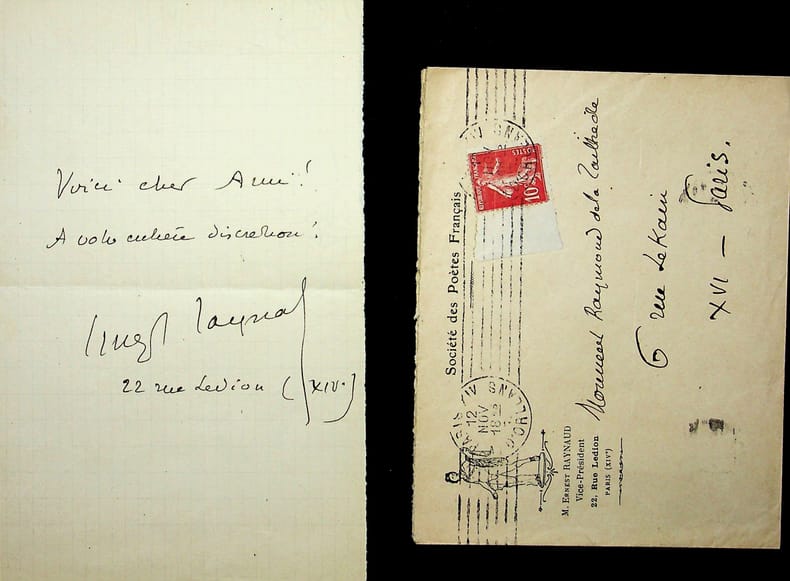 Voici cher Ami!
A votre entière discrétion!
Ernest Raynaud
22 rue Ledion (XIVe)
Société des Poètes Français
M. ERNEST RAYNAUD
Vice-Président
22, Rue Ledion
PARIS (XIVe)
REPUBLIQUE FRANÇAISE
POSTES
10c
PARIS XIV
12
NOV
18
D'ORLEANS
Monsieur Raymond de la Tailhède
6 rue Le Kain
XVI – Paris.